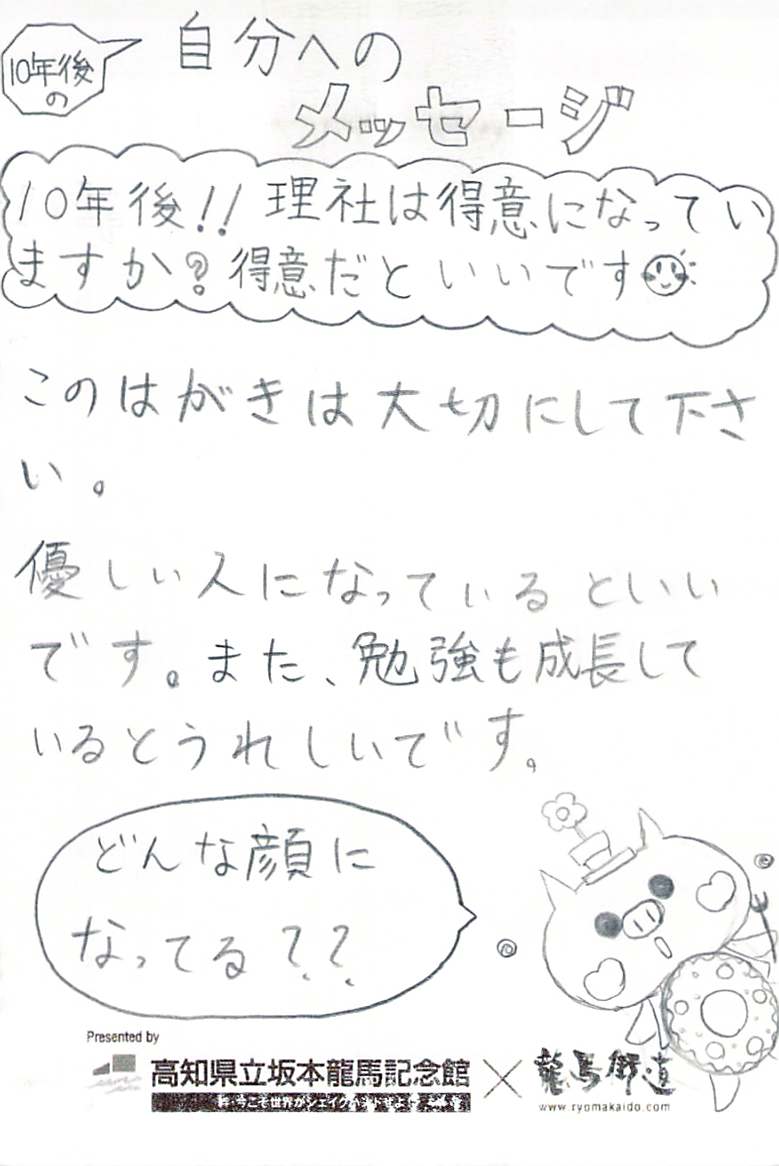 10年後
の
自分への
メッセージ
10年後!!理社は得意になってい
ますか?得意だといいです
このはがきは大切にして下さ
い。
優しい人になっているといい
です。また、勉強も成長して
いるとうれしいです。
どんな顔に
なってる??
Presented by
高知県立坂本龍馬記念館×龍馬街道
今こそ世界がシェイクハンドぜよ!
www.ryomakaido.com